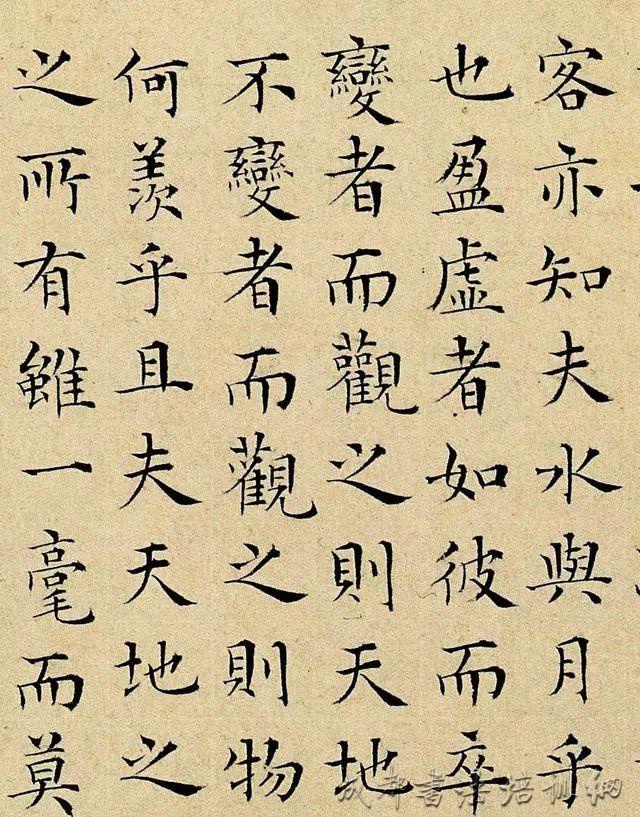 客亦知夫水與月乎
也盈虛者如彼而卒
變者而觀之則天地
不變者而觀之則物
何羨乎且夫天地之
之所有雖一毫而莫
成都書法培训網